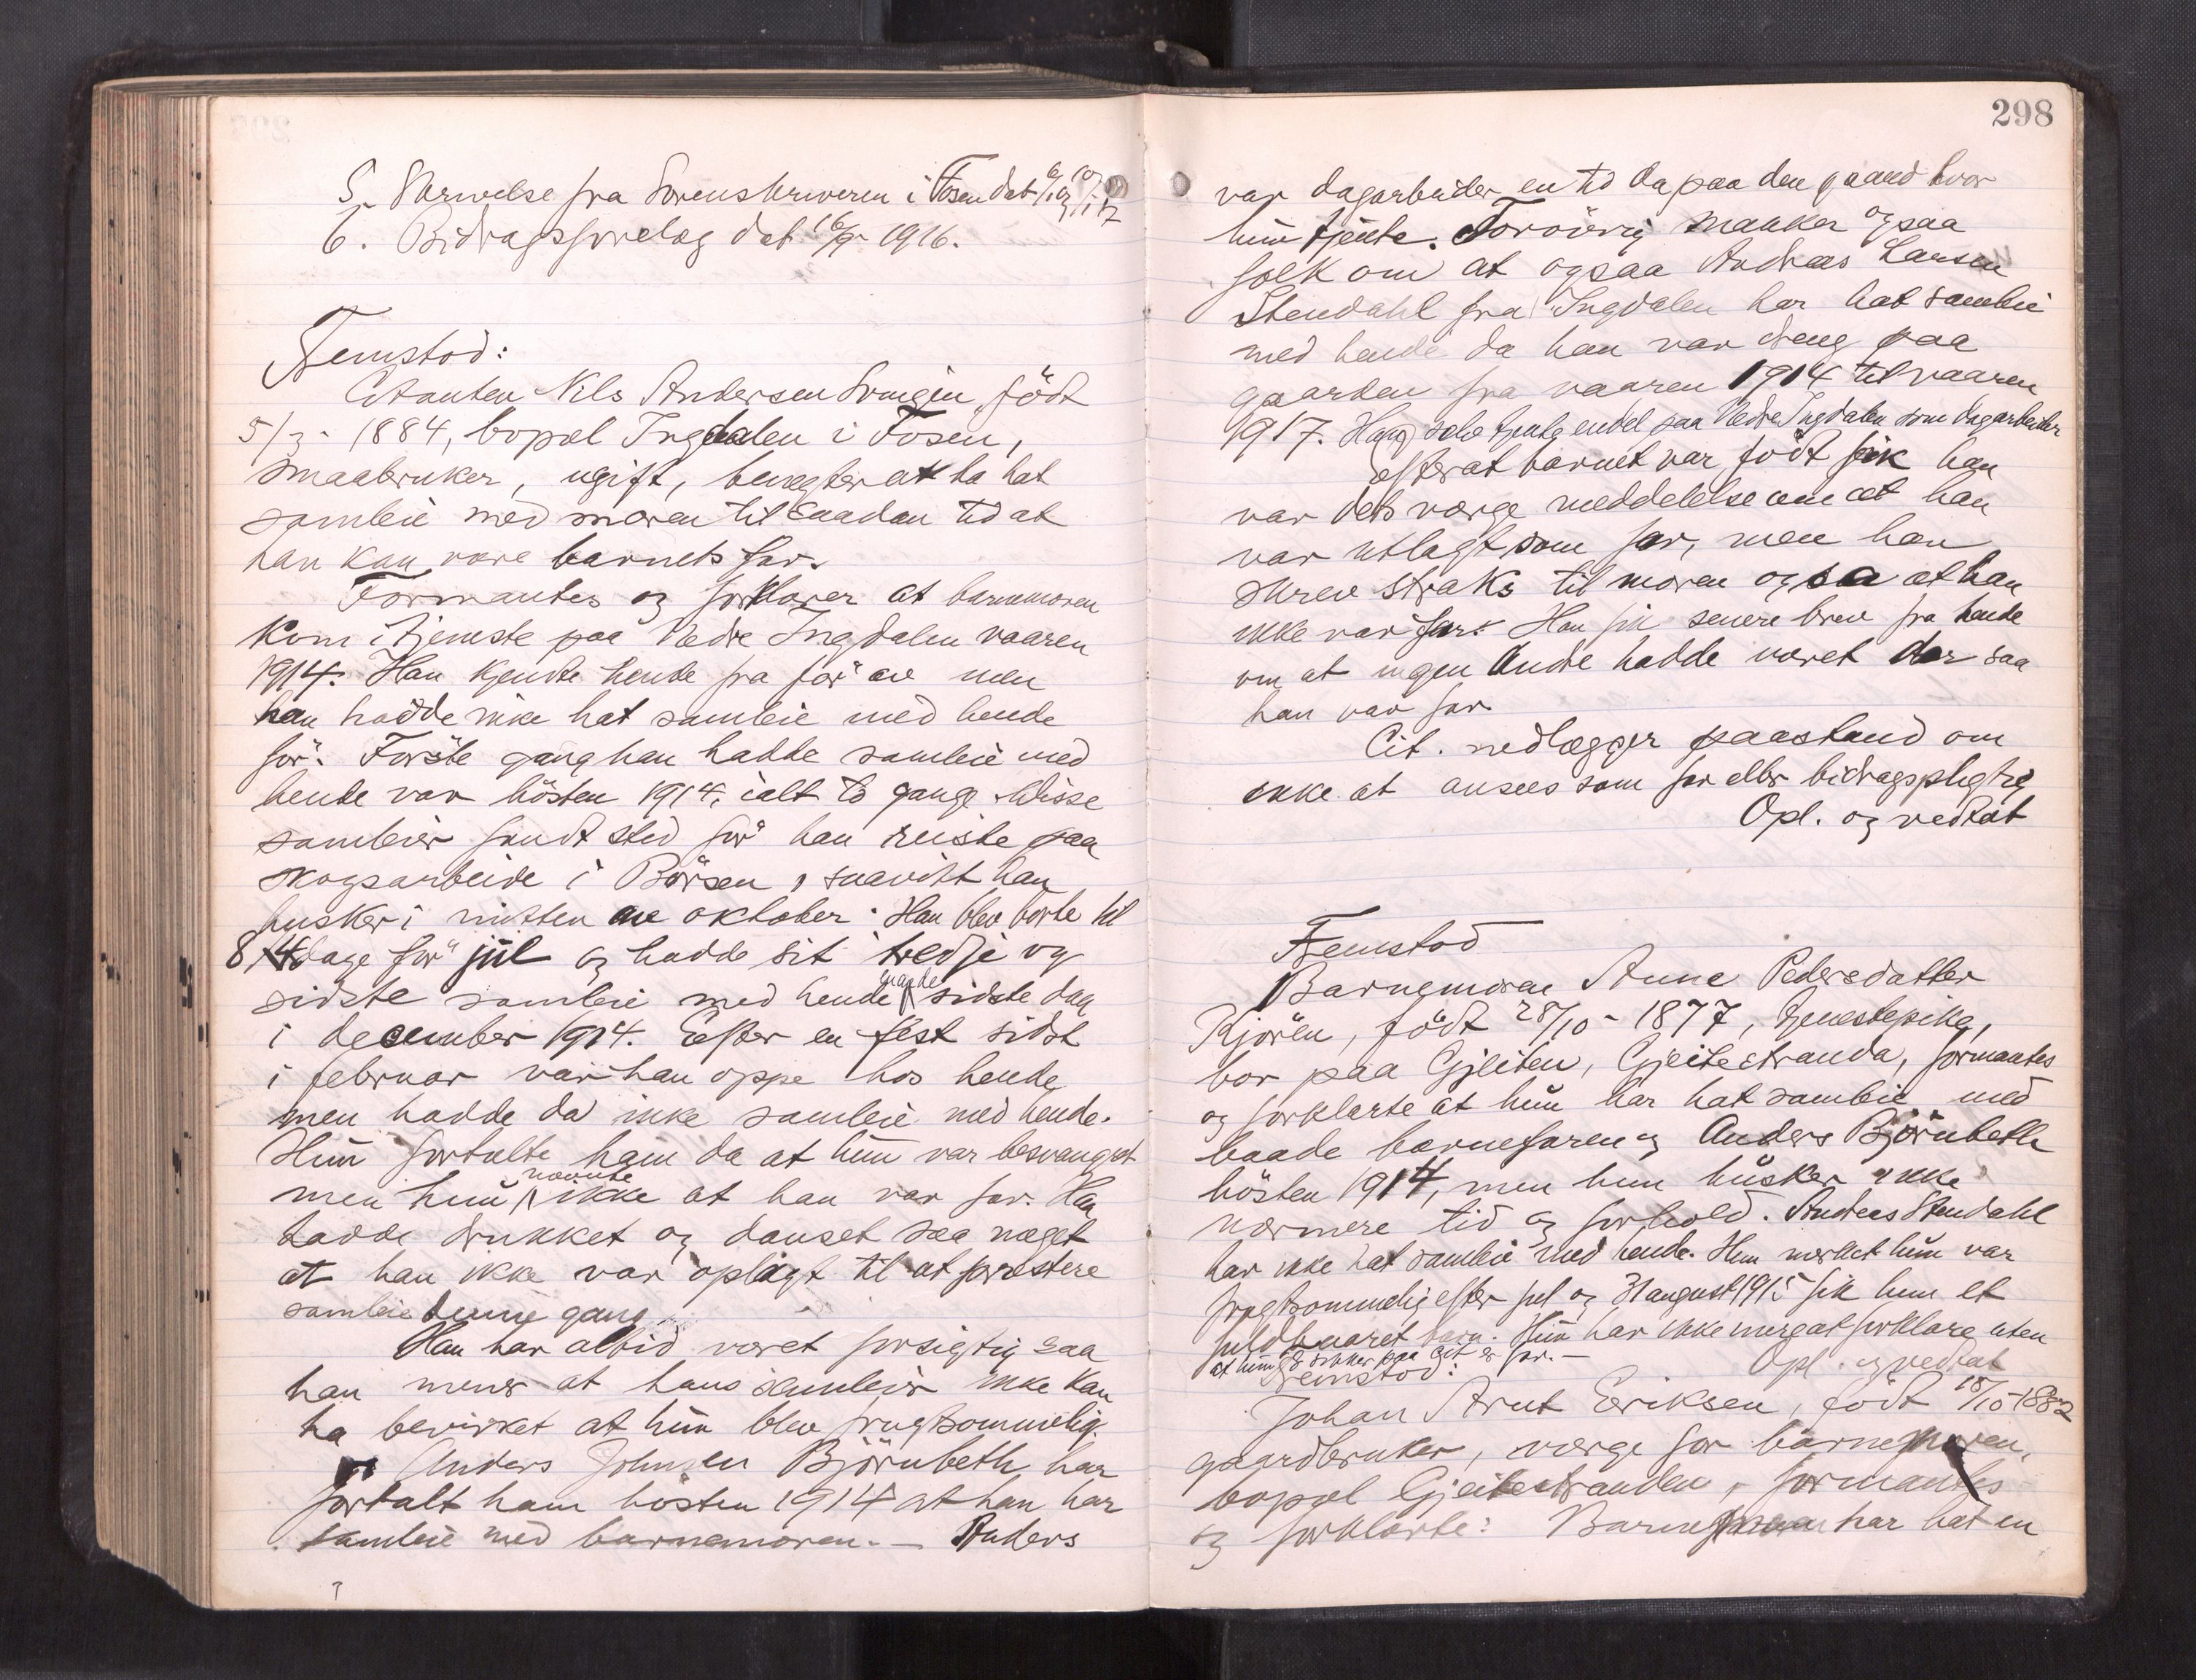 5. Skrivelse fra Sorenskriveren i Fosen dat
6. Bidragsforelæg dat 16/9- 1916.
Fremstod:
Citanten Nils Andersen født
5/3- 1884, bopæl Ingdalen i Fosen,
smaabruker, ugift, benegter at ha hat
samleie med moren til saadan tid at
han kan være barnets far.
Formantes og forklarer at barnemoren
kom i tjeneste paa Nedre Ingdalen vaaren
1914. Han kjendte hende fra før av men
han hadde ikke hat samleie med hende
før. Første gang han hadde samleie med
hende var høsten 1914, ialt to gange. Disse
samleier fandt sted før han reiste paa
skogsarbeide i Børsen, saavidt han
husker i midten av oktober. Han blev borte til
8 dage før jul og hadde sit tredje og
sidste samleie med hende sidste dag
i december 1914. Efter en fest sidst
i februar var han oppe hos hende
men hadde da ikke samleie med hende.
Hun fortalte ham da at hun var besvangret
men hun nævnte ikke at han var far. Han
hadde drukket og danset saa meget
at han ikke var oplagt til at præstere
samleie denne gang.
Han har altid været forsigtig saa
han mener at hans samleier ikke kan
ha bevirket at hun blev frugtsommelig.
Anders Johnsen Björnbeth har
fortalt ham høsten 1914 at han har
samleie med barnemoren. – Anders
298
var dagarbeider en tid da paa den gaard hvor
hun tjente. Forøvrig snakker ogsaa
folk om at ogsaa Andreas Larsen
Stendahl fra Ingdalen har hat samleie
med hende da han var dreng paa
gaarden fra vaaren 1914 til vaaren
1917. Han selv tjente endel paa Nedre Ingdalen som dagarbeider
Efterat barnet var født fik han
var dets værge meddelelse om at han
var utlagt som far, men han
skrev straks til moren og sa at han
ikke var far. Han fik senere brev fra hende
om at ingen andre hadde været der saa
han var far
Cit. nedlægger paastand om
ikke at ansees som far eller bidragspligtig
Opl. og vedtat
Fremstod
Barnemoren Anne Pedersdatter
Kjøren, født 28/10- 1877, tjenestepike,
bor paa Gjeiten, Gjeitestranda, formantes
og forklarte at hun har hat samleie med
baade barnefaren og Anders Björnbeth
høsten 1914, men hun husker ikke
nærmere tid og forhold. Andreas Stendahl
har ikke hat samleie med hende. Hun merket hun var
frugtsommelig efter jul og 31 august 1915 fik hun et
fuldbaaret barn. Hun har ikke mere at forklare uten
at hun er sikker paa cit er far. –
Opl. og vedtat
Fremstod:
Johan Arnt Eriksen, født 18/10-1882
gaardbruker, værge for barnemoren,
bopæl Gjeitestranden, formantes
og forklarte: Barnemoren har hat en